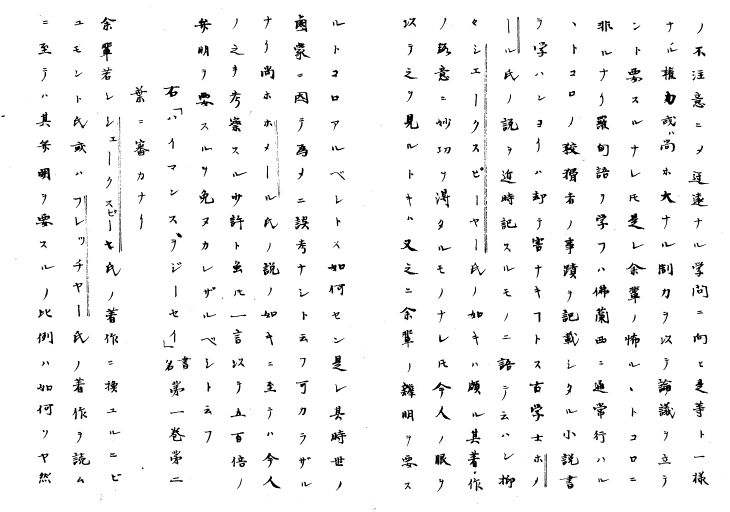 ノ不注意ニメ迂遠ナル学問ニ向ヒ是等ト一様
ナル権力或ハ尚ホ大ナル制力ヲ以テ論議ヲ立テ
ント要スルナレ𪜈是レ余輩ノ怖ルヽトコロニ
非ルナリ羅甸語ヲ学フハ佛蘭西ニ通常行ハル
ヽトコロノ狡猾者ノ事蹟ヲ記載シタル小説書
ヲ学ハンヨリハ却テ害ナキフトス古学士ホメ
ール氏ノ説ヲ近時記スルモノニ語テ云ハン抑
々シエークスピーヤー氏ノ如キハ頗ル其著作
ノ趣意ニ妙切ヲ得タルモノナレ𪜈今人ノ眼ヲ
以テ之ヲ見ルトキハ又之ニ余輩ノ辨明ヲ要ス
ルトコロアルベレトス如何セン是レ其時世ノ
鹵蒙ニ因テ為メニ誤考ナシト云フ可カラザル
ナリ尚ホホメール氏ノ説ノ如キニ至テハ今人
ノ之ヲ考察スル少許ト虽𪜈一言以テ五百倍ノ
弁明ヲ要スルヲ免ヌカレザルベシト云フ
右「ハイマンスヂジーセイ」書名第一巻第二
葉ニ審カナリ
余輩若レシェークスピーヤ氏ノ著作ニ換エルニビ
ユモント氏或ハフレッチヤー氏ノ著作ヲ読ム
ニ至テハ其弁明ヲ要スルノ比例ハ如何ソヤ然